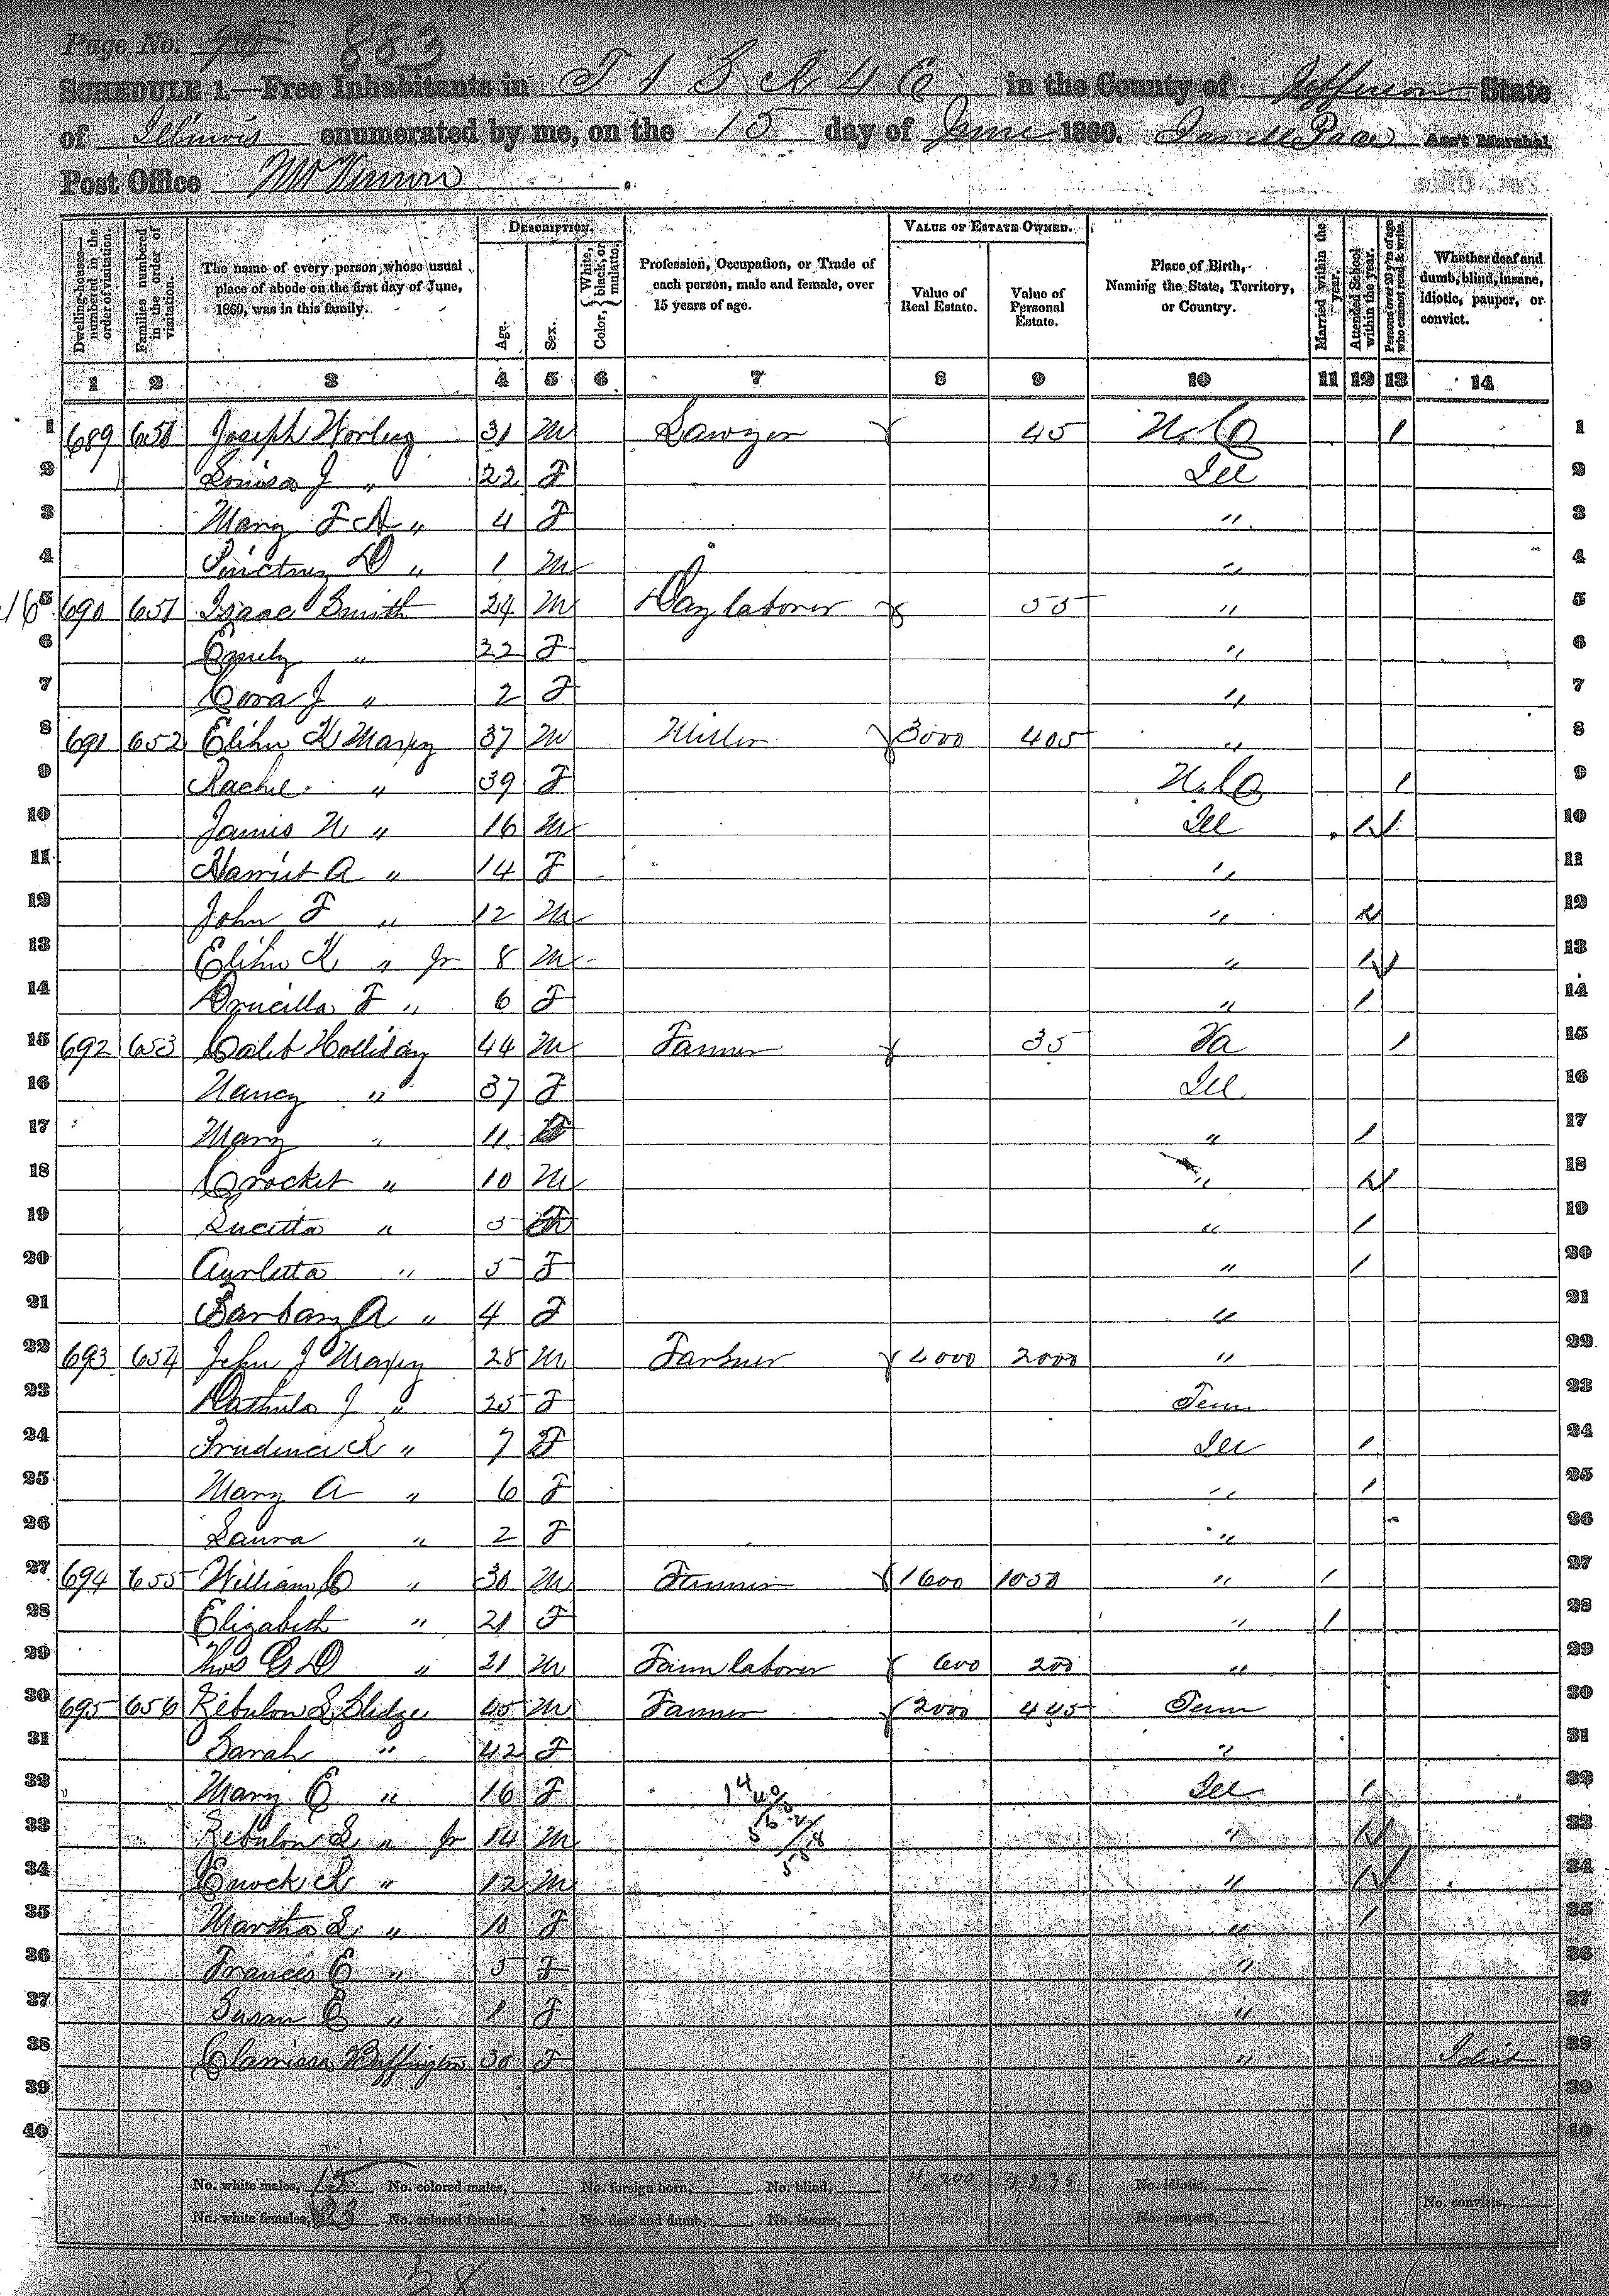 Page No. 96 883
SCHEDULE 1.—Free Inhabitants in T 1 S R 4 E in the County of Jefferson State
of Illinois enumerated by me, on the 15 day of June 1860. Ass't Marshal.
Post Office Mt Vernon.
Dwelling-houses—numbered in the order of visitation.
Families numbered in the order of visitation.
The name of every person whose usual place of abode on the first day of June, 1860, was in this family.
DESCRIPTION.
Age.
Sex.
Color, { White, black, or mulatto.
Profession, Occupation, or Trade of each person, male and female, over 15 years of age.
VALUE OF ESTATE OWNED.
Value of Real Estate.
Value of Personal Estate.
Place of Birth, Naming the State, Territory, or Country.
Married within the year.
Attended School within the year.
Persons over 20 y'rs of age who cannot read & write.
Whether deaf and dumb, blind, insane, idiotic, pauper, or convict.
1 2 3 4 5 6 7 8 9 10 11 12 13 14
1 689 650 Joseph 31 M Sawyer 45 N. Ca 1 1
2 Louisa J " 22 F Ill 2
3 Mary F A " 4 F " 3
4 D " 1 M " 4
5 690 651 Isaac Smith 24 M Day laborer 55 " 5
6 Emily " 22 F " 6
7 Cora J " 2 F " 7
8 691 652 Elihu K Maxey 37 M Miller 3000 405 " 8
9 Rachel " 39 F N. Ca 1 9
10 James N " 16 M Ill 1 10
11 Harriet A " 14 F " 11
12 John F " 12 M " 1 12
13 Elihu K " Jr 8 M " 1 13
14 Drucilla F " 6 F " 1 14
15 692 653 Caleb Holliday 44 M Farmer 35 Va 1 15
16 Nancy " 37 F Ill 16
17 Mary " 11 F " 1 17
18 Crocket " 10 M " 1 18
19 Lucetta " 5 F " 1 19
20 " 5 F " 1 20
21 Barbary A " 4 F " 21
22 693 654 John J Maxey 28 M Farmer 4000 2000 " 22
23 J " 25 F Tenn 23
24 Prudence R " 7 F Ill 1 24
25 Mary A " 6 F " 1 25
26 Laura " 2 F " 26
27 694 655 William C " 30 M Farmer 1600 1050 " 1 27
28 Elizabeth " 21 F " 1 28
29 Thos G D " 21 M Farm laborer 600 200 " 29
30 695 656 Zebulon S Sledge 45 M Farmer 2000 445 Tenn 30
31 Sarah " 42 F " 31
32 Mary E " 16 F Ill 1 32
33 Zebulon S " Jr 14 M " 1 33
34 Enock R " 12 M " 1 34
35 Martha S " 10 F " 1 35
36 Frances E " 5 F " 36
37 Susan E " 1 F " 37
38 Clarrissa Buffington 30 F " Idiot 38
39 39
40 40
No. white males, 15 No. colored males, No. foreign born, No. blind, 11,200 4,235 No. idiotic,
No. white females, 23 No. colored females, No. deaf and dumb, No. insane, No. paupers, No. convicts,
38